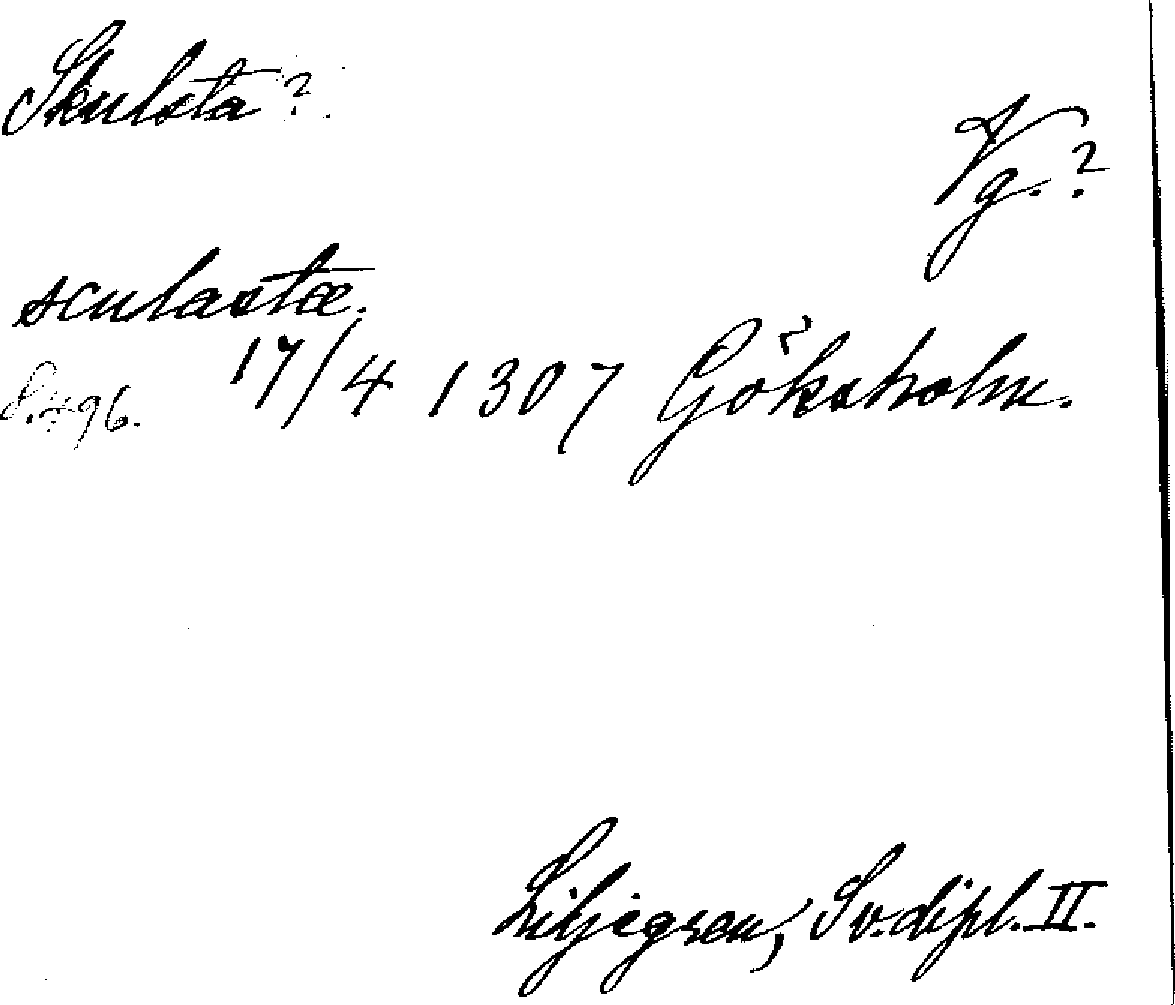 Skulsta?
Vg.?
sculastæ.
S. 496. 17/4 1307 Göksholm.
Liljegren, Sv. dipl. II.